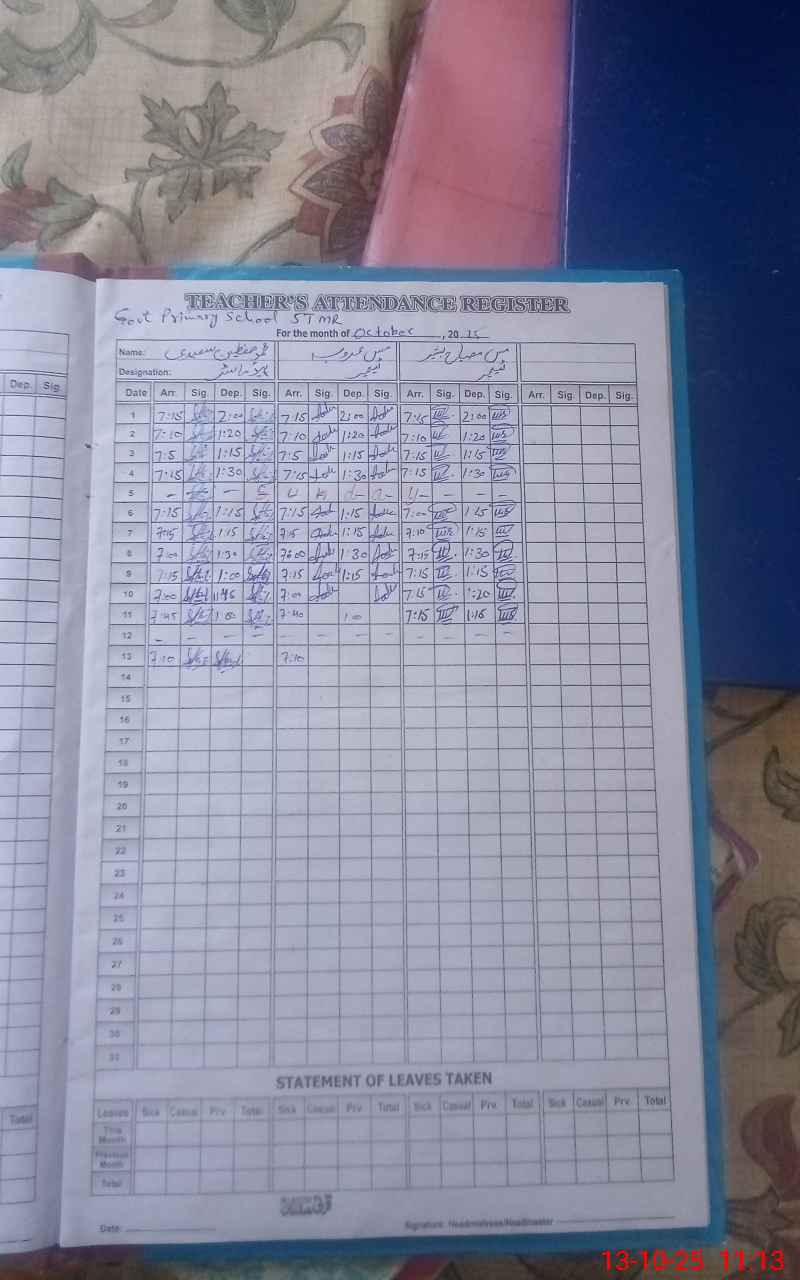 TEACHER'S ATTENDANCE REGISTER
Govt Primary School STMR
For the month of October, 2025
Name: مس مصباح بشیر
Designation: ہیڈ ماسٹر ٹیچر ٹیچر
Dep. Sig.
Date Arr. Sig. Dep. Sig. Arr. Sig. Dep. Sig. Arr. Sig. Dep. Sig. Arr. Sig. Dep. Sig.
1 7:15 2:00 7:15 2:00 7:15 2:00
2 7:10 1:20 7:10 1:20 7:10 1:20
3 7:5 1:15 7:5 1:15 7:15 1:15
4 7:15 1:30 7:15 1:30 7:15 1:30
5 - - S u n d - a - y - - - -
6 7:15 1:15 7:15 1:15 7:00 1:15
7 7:15 1:15 7:15 1:15 7:10 1:15
8 7:00 1:30 1:30 7:15 1:30
9 7:15 1:00 7:15 1:15 7:15 1:15
10 7:00 7:00 7:15 1:20
11 7:45 7:40 7:15 1:15
12 - - - - - - - - - - - -
13 7:10 7:10
14
15
16
17
18
19
20
21
22
23
24
25
26
27
28
29
30
31
STATEMENT OF LEAVES TAKEN
Total
Leaves Sick Casual Prv. Total Sick Casual Prv. Total Sick Casual Prv. Total Sick Casual Prv. Total
This Month
Previous Month
Total
Date:
Signature: Headmistress/Headmaster
13-10-25 11:13